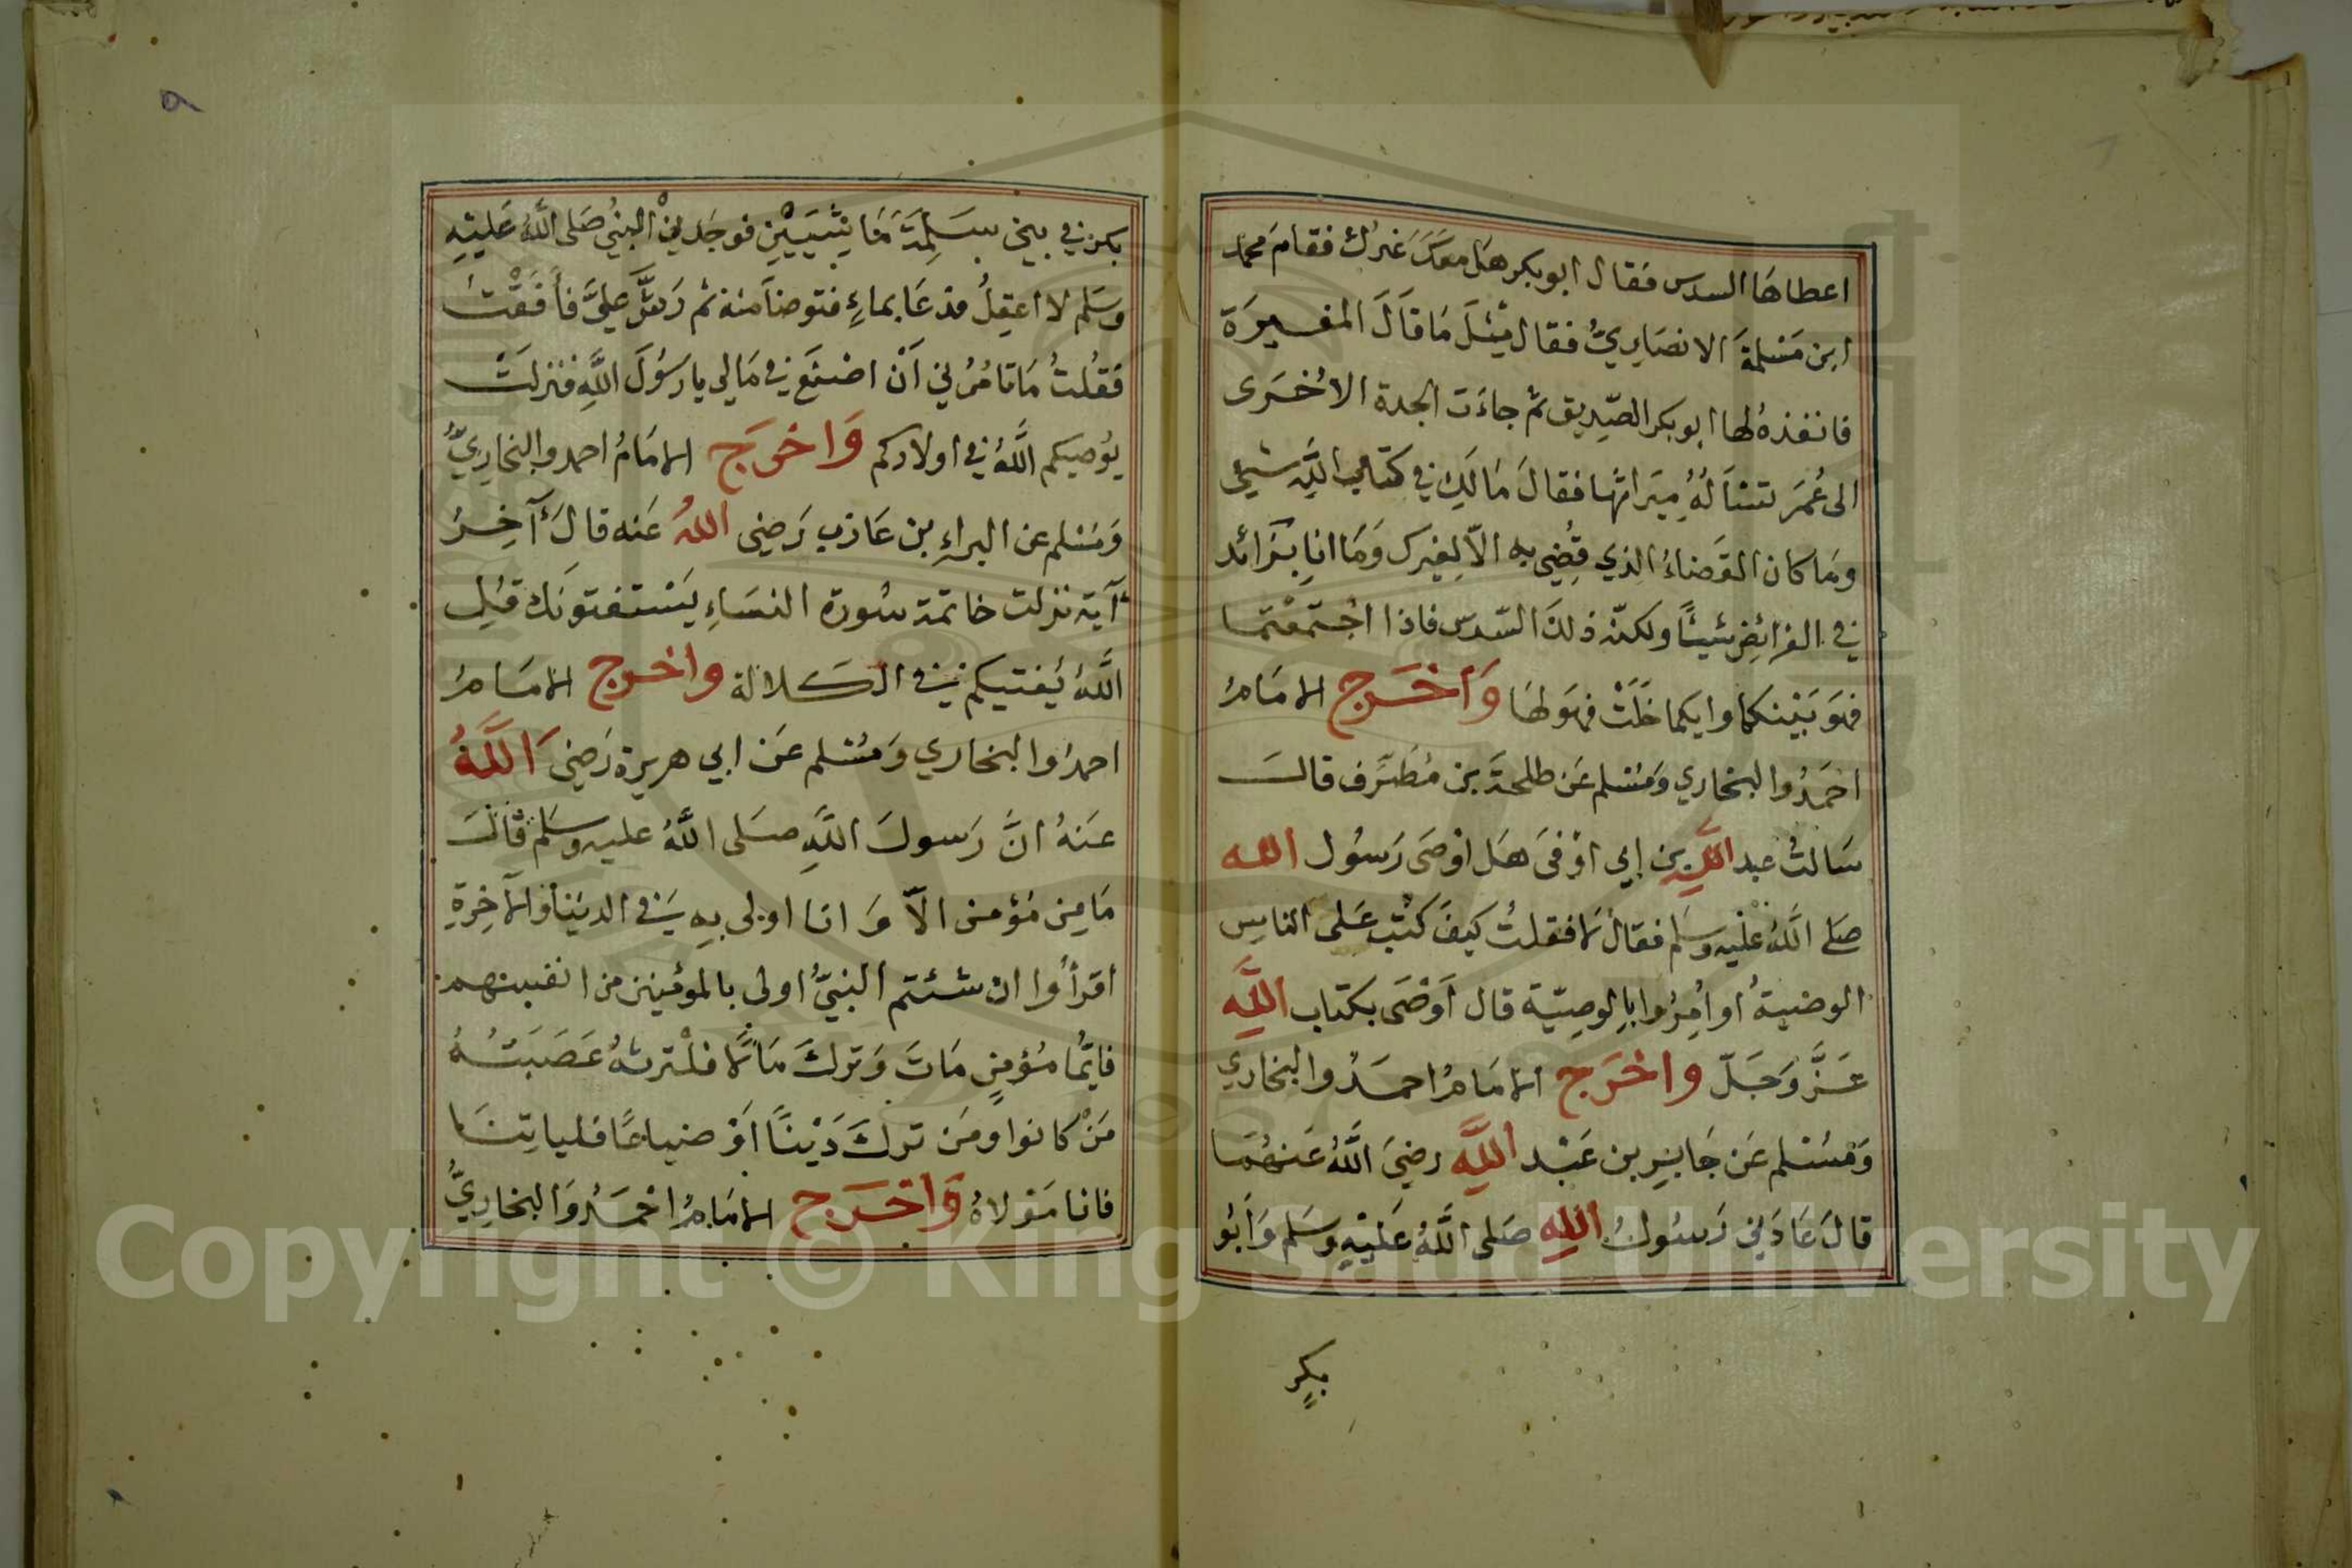 اعطاها السدس فقال ابو بكر هَل معَكَ غيرك فقامَ محمد
ابن مَسْلمةَ الانصَاريُّ فقال مِثْلَ مَا قَالَ المغيرَة
فانفذهُ لها ابو بكر الصّدِيق ثم جاءَت الجدة الاُخرَى
الى عُمَر تسْأَلُهُ مِيَراثها فقالَ مَا لَكِ في كتابِ اللَّهِ شيئ
ومَا كان القَضَاءُ الذي قُضِي به الاّ لِغيرك وَمَا انا بزَائد
في الفرائِضِ شيئًا ولكنّه ذلكَ السّدس فاذا اجْتَمَعْتما
فهوَ بَيْنكما وايكما خَلَتْ فهوَ لهَا وَأخْرَج الامَامُ
احمَدُ والبخاري وَمُسْلم عَن طلحةَ بن مُطَرِّف قالَ
سَالتُ عبد اللَّهِ بن ابي اوْفىَ هَل اوْصَى رَسُول الله
صَلى اللَّهُ عَليْهِ وسَلم فقال لا فقلتُ كيفَ كُتِبَ عَلى الناسِ
الوصيةُ او اُمِرُوا بالوصِيّة قال اَوْصَى بكتاب اللَّهِ
عَزَّ وَجَلّ واخْرَج الامَامُ احمَدُ والبخاري
وَمُسْلم عَن جَابِرِ بن عَبْد اللَّهِ رضيَ اللَّهُ عَنهُمَا
قالَ عَادَني رَسُولُ اللَّهِ صَلى اللَّهُ عَليْهِ وسَلم وَابُو
بكرٍ
٩
بكر في بني سَلِمَةَ مَاشِيَيْنِ فوجَدني النبيُ صَلى اللَّهُ عَليْهِ
وسَلم لا اعقِلُ فدعَا بماءٍ فتوضأ منه ثم رَشَّ عَليَّ فأفَقْتُ
فَقُلتُ مَا تامُرُني اَنْ اصْنَعَ في مَالي يا رَسُولَ اللَّهِ فنزلتْ
يُوصيكم اللَّهُ في اولادكم وَاخرَج الامَامُ احمد والبخارِيُّ
وَمُسْلم عن البراءِ بن عَازب رَضي اللهُ عَنه قالَ آخِرُ
آية نزلت خاتمة سُورة النسَاءِ يَسْتفتونَك قلِ
اللَّهُ يُفتيكم في الكَلالة واخرج الامَامُ
احمدُ والبخاري وَمُسْلم عَن ابي هريرة رَضيَ اللَّهُ
عَنهُ انَّ رَسولَ اللَّهِ صَلى اللَّهُ عليه وسَلم قالَ
مَا مِن مُؤمن الاّ وَانا اولى بِهِ في الدنيَا وَالآخِرةِ
اقرأُوا ان شئتم النبيُّ اولى بالمؤمنين من انفسهم
فايّمُا مُؤمنٍ مَاتَ وَتركَ مَالاً فلْترثهُ عَصَبَتُهُ
مَنْ كانوا ومَن تركَ دَيْنًا اَوْ ضياعًا فلياتِنَا
فانا مَوْلاهُ وَاخْرَج الامَامُ احْمَدُ وَالبخارِيُّ
Copyright © King Saud University